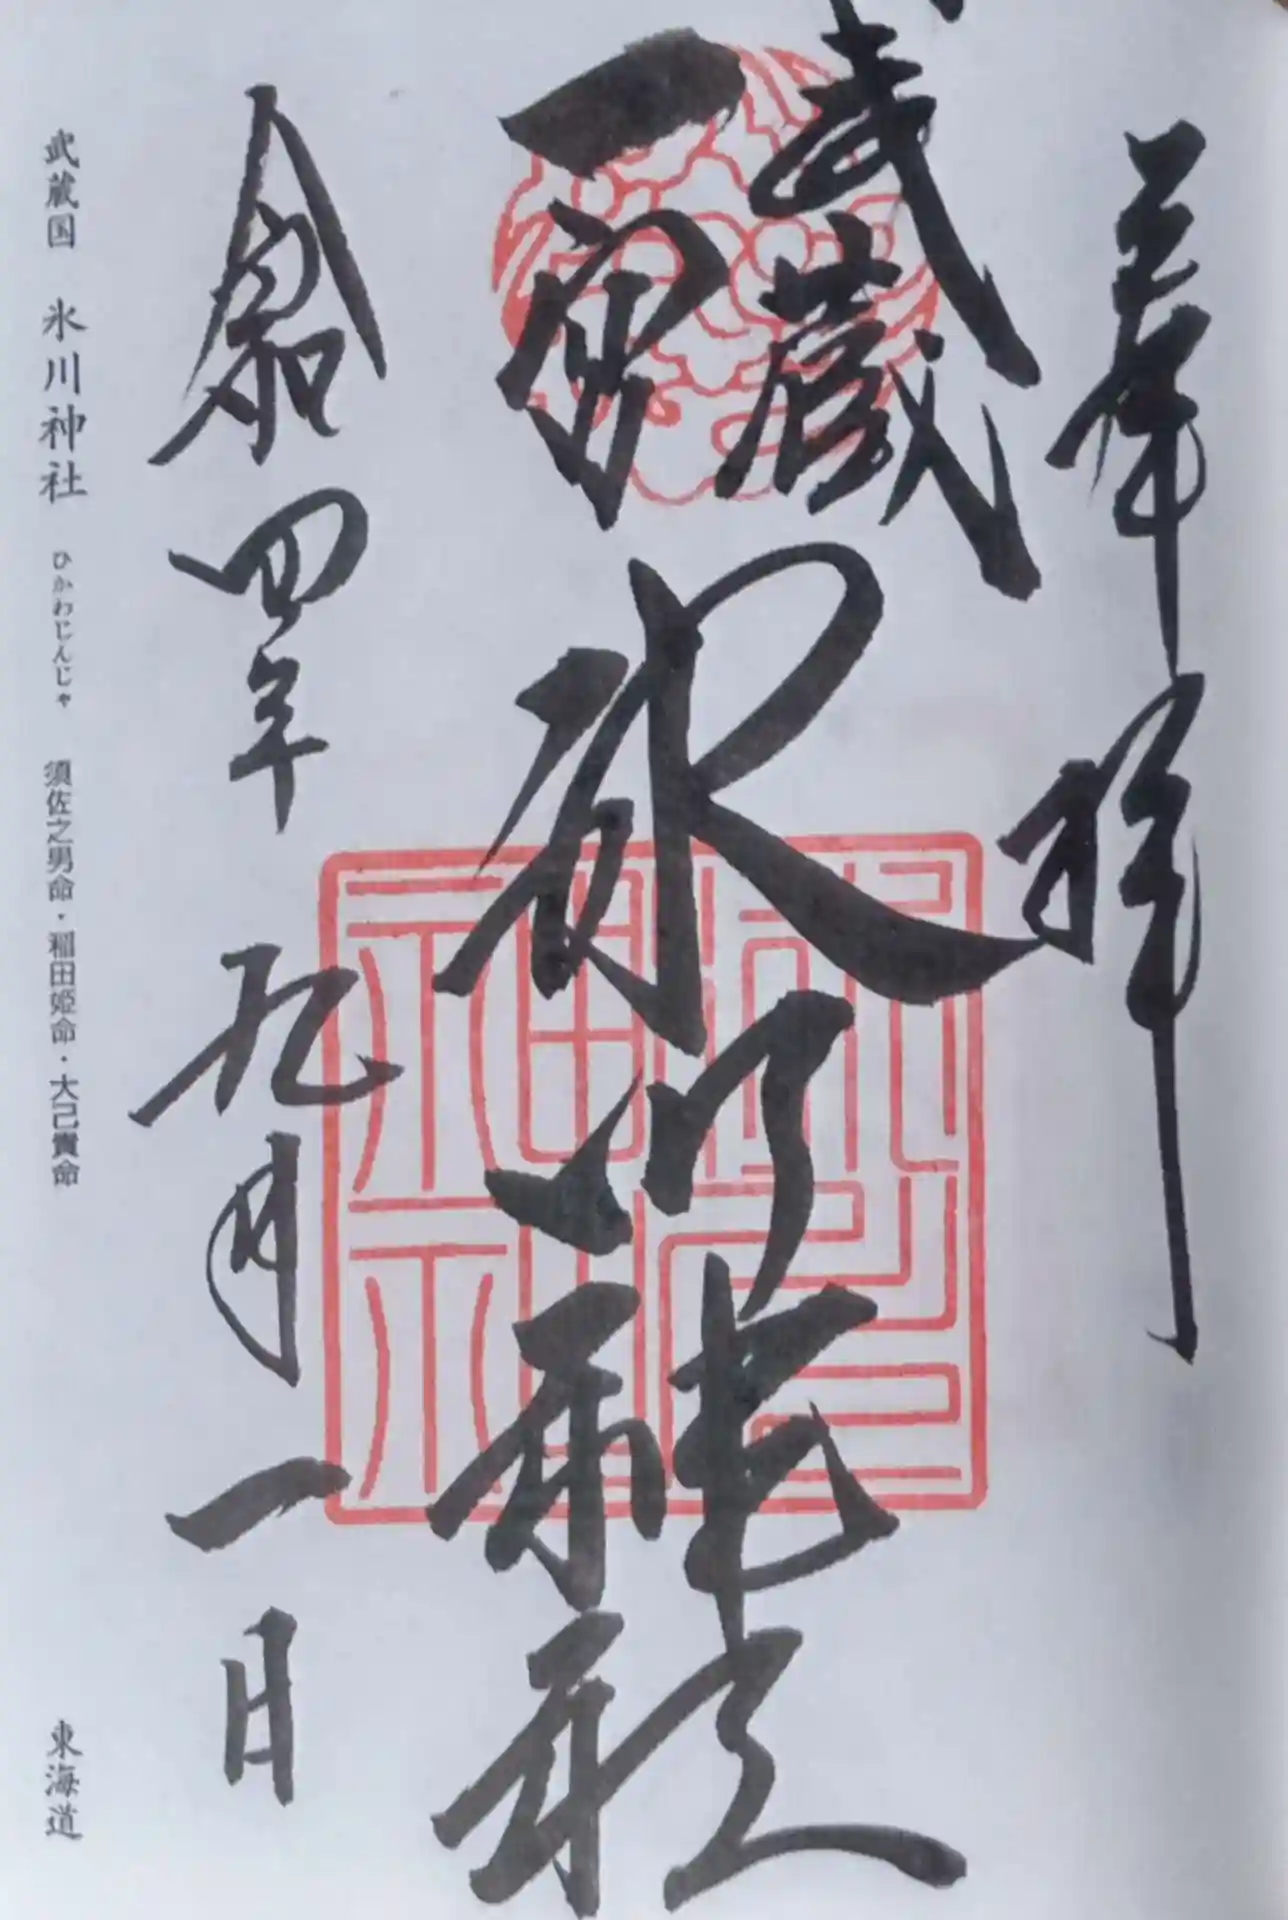 奉拝
武蔵
一宮
氷川神社
令和四年九月一日
武蔵国 氷川神社 ひかわじんじゃ 須佐之男命・稲田姫命・大己貴命 東海道